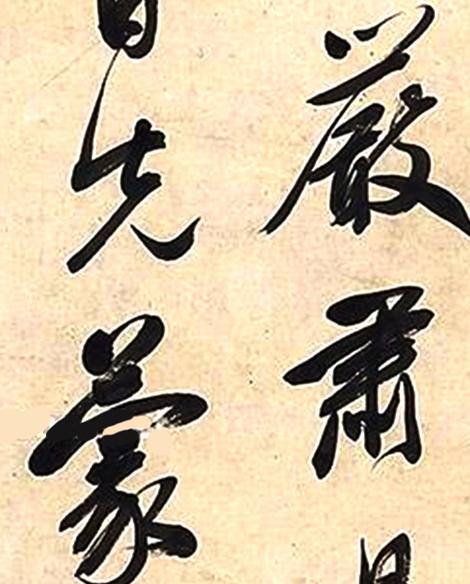 嚴肅
先蒙